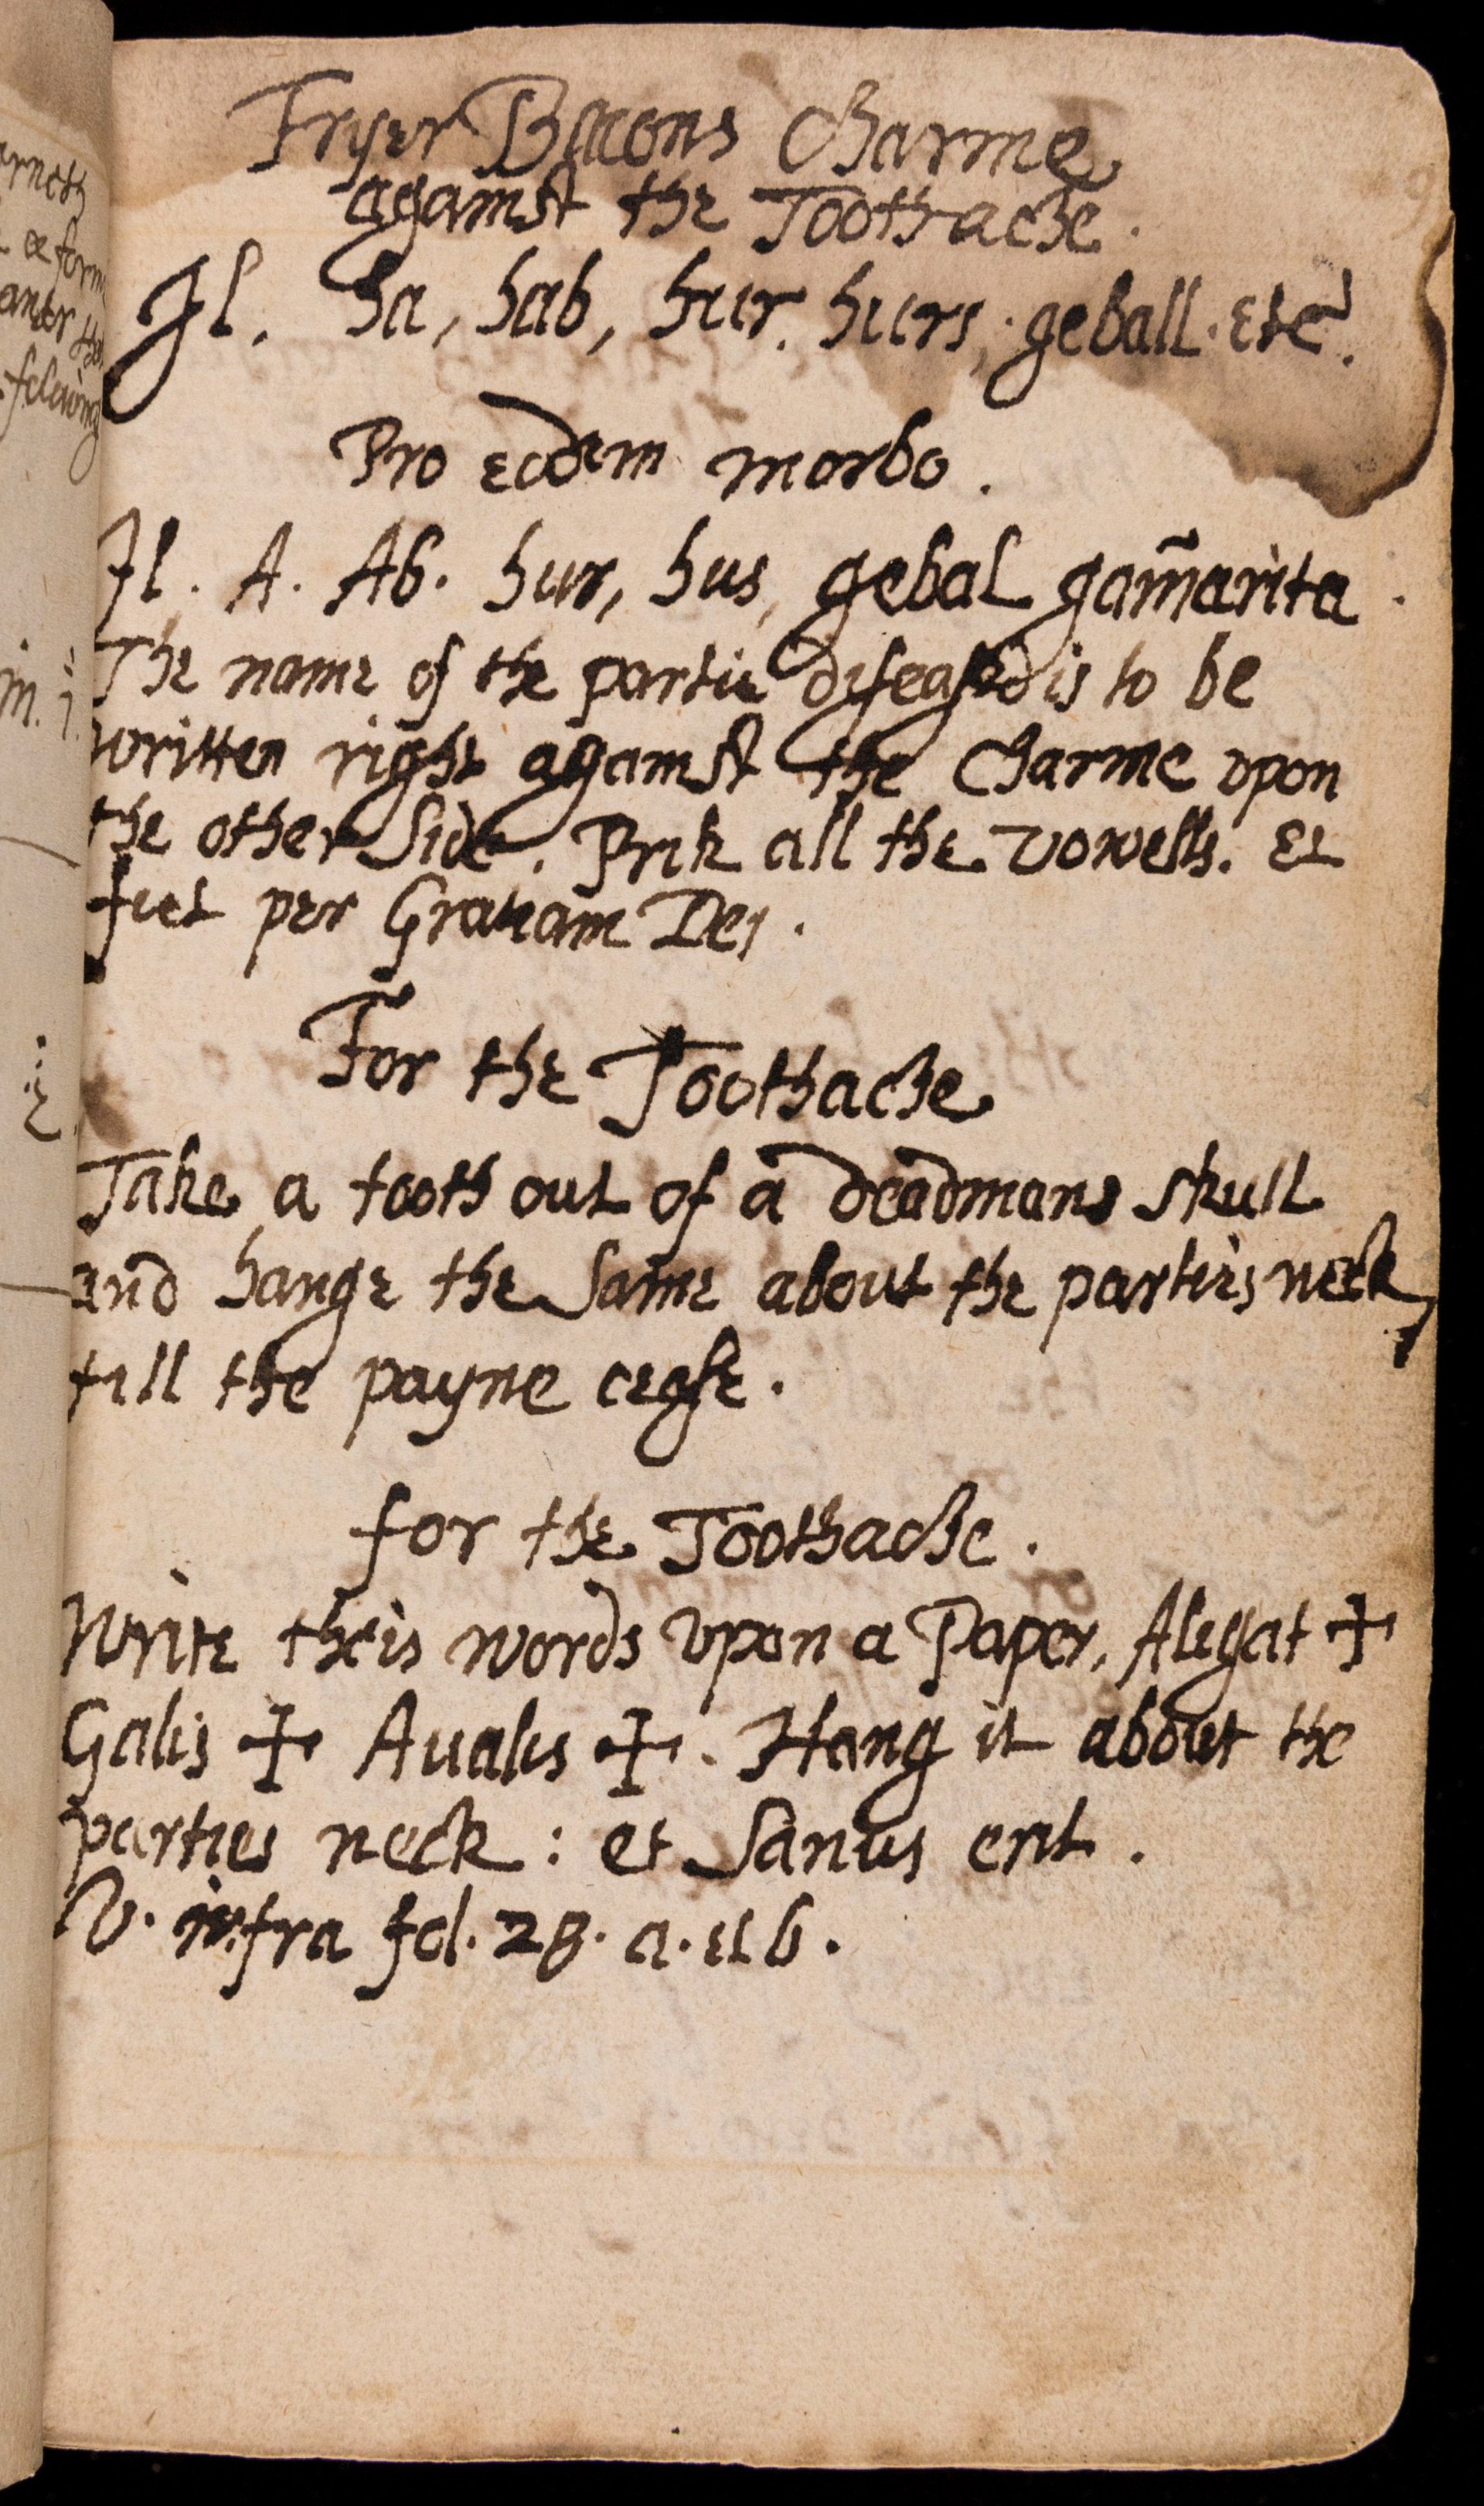 Fryer Bacons Charme
against the Toothache.
Jl. ha, hab, hur. hurs, geball. etc.
Pro eodem morbo.
Jl. A. Ab. hur, hus, gebal gam̃arita.
The name of the partie diseased is to be
written right against the Charme vpon
the other Side. Prik all the vowells. Et
fiet per Gratiam Dei.
For the Toothache
Take a tooth out of a deadmans skull
and hange the Same about the parties neck,
till the payne cease.
for the Toothache.
Write theis words vpon a Paper, Alegat ✢
Galis ✢ Aualis ✢. Hang it about the
parties neck: et Sanus erit.
V. infra fol. 28. a. et b.